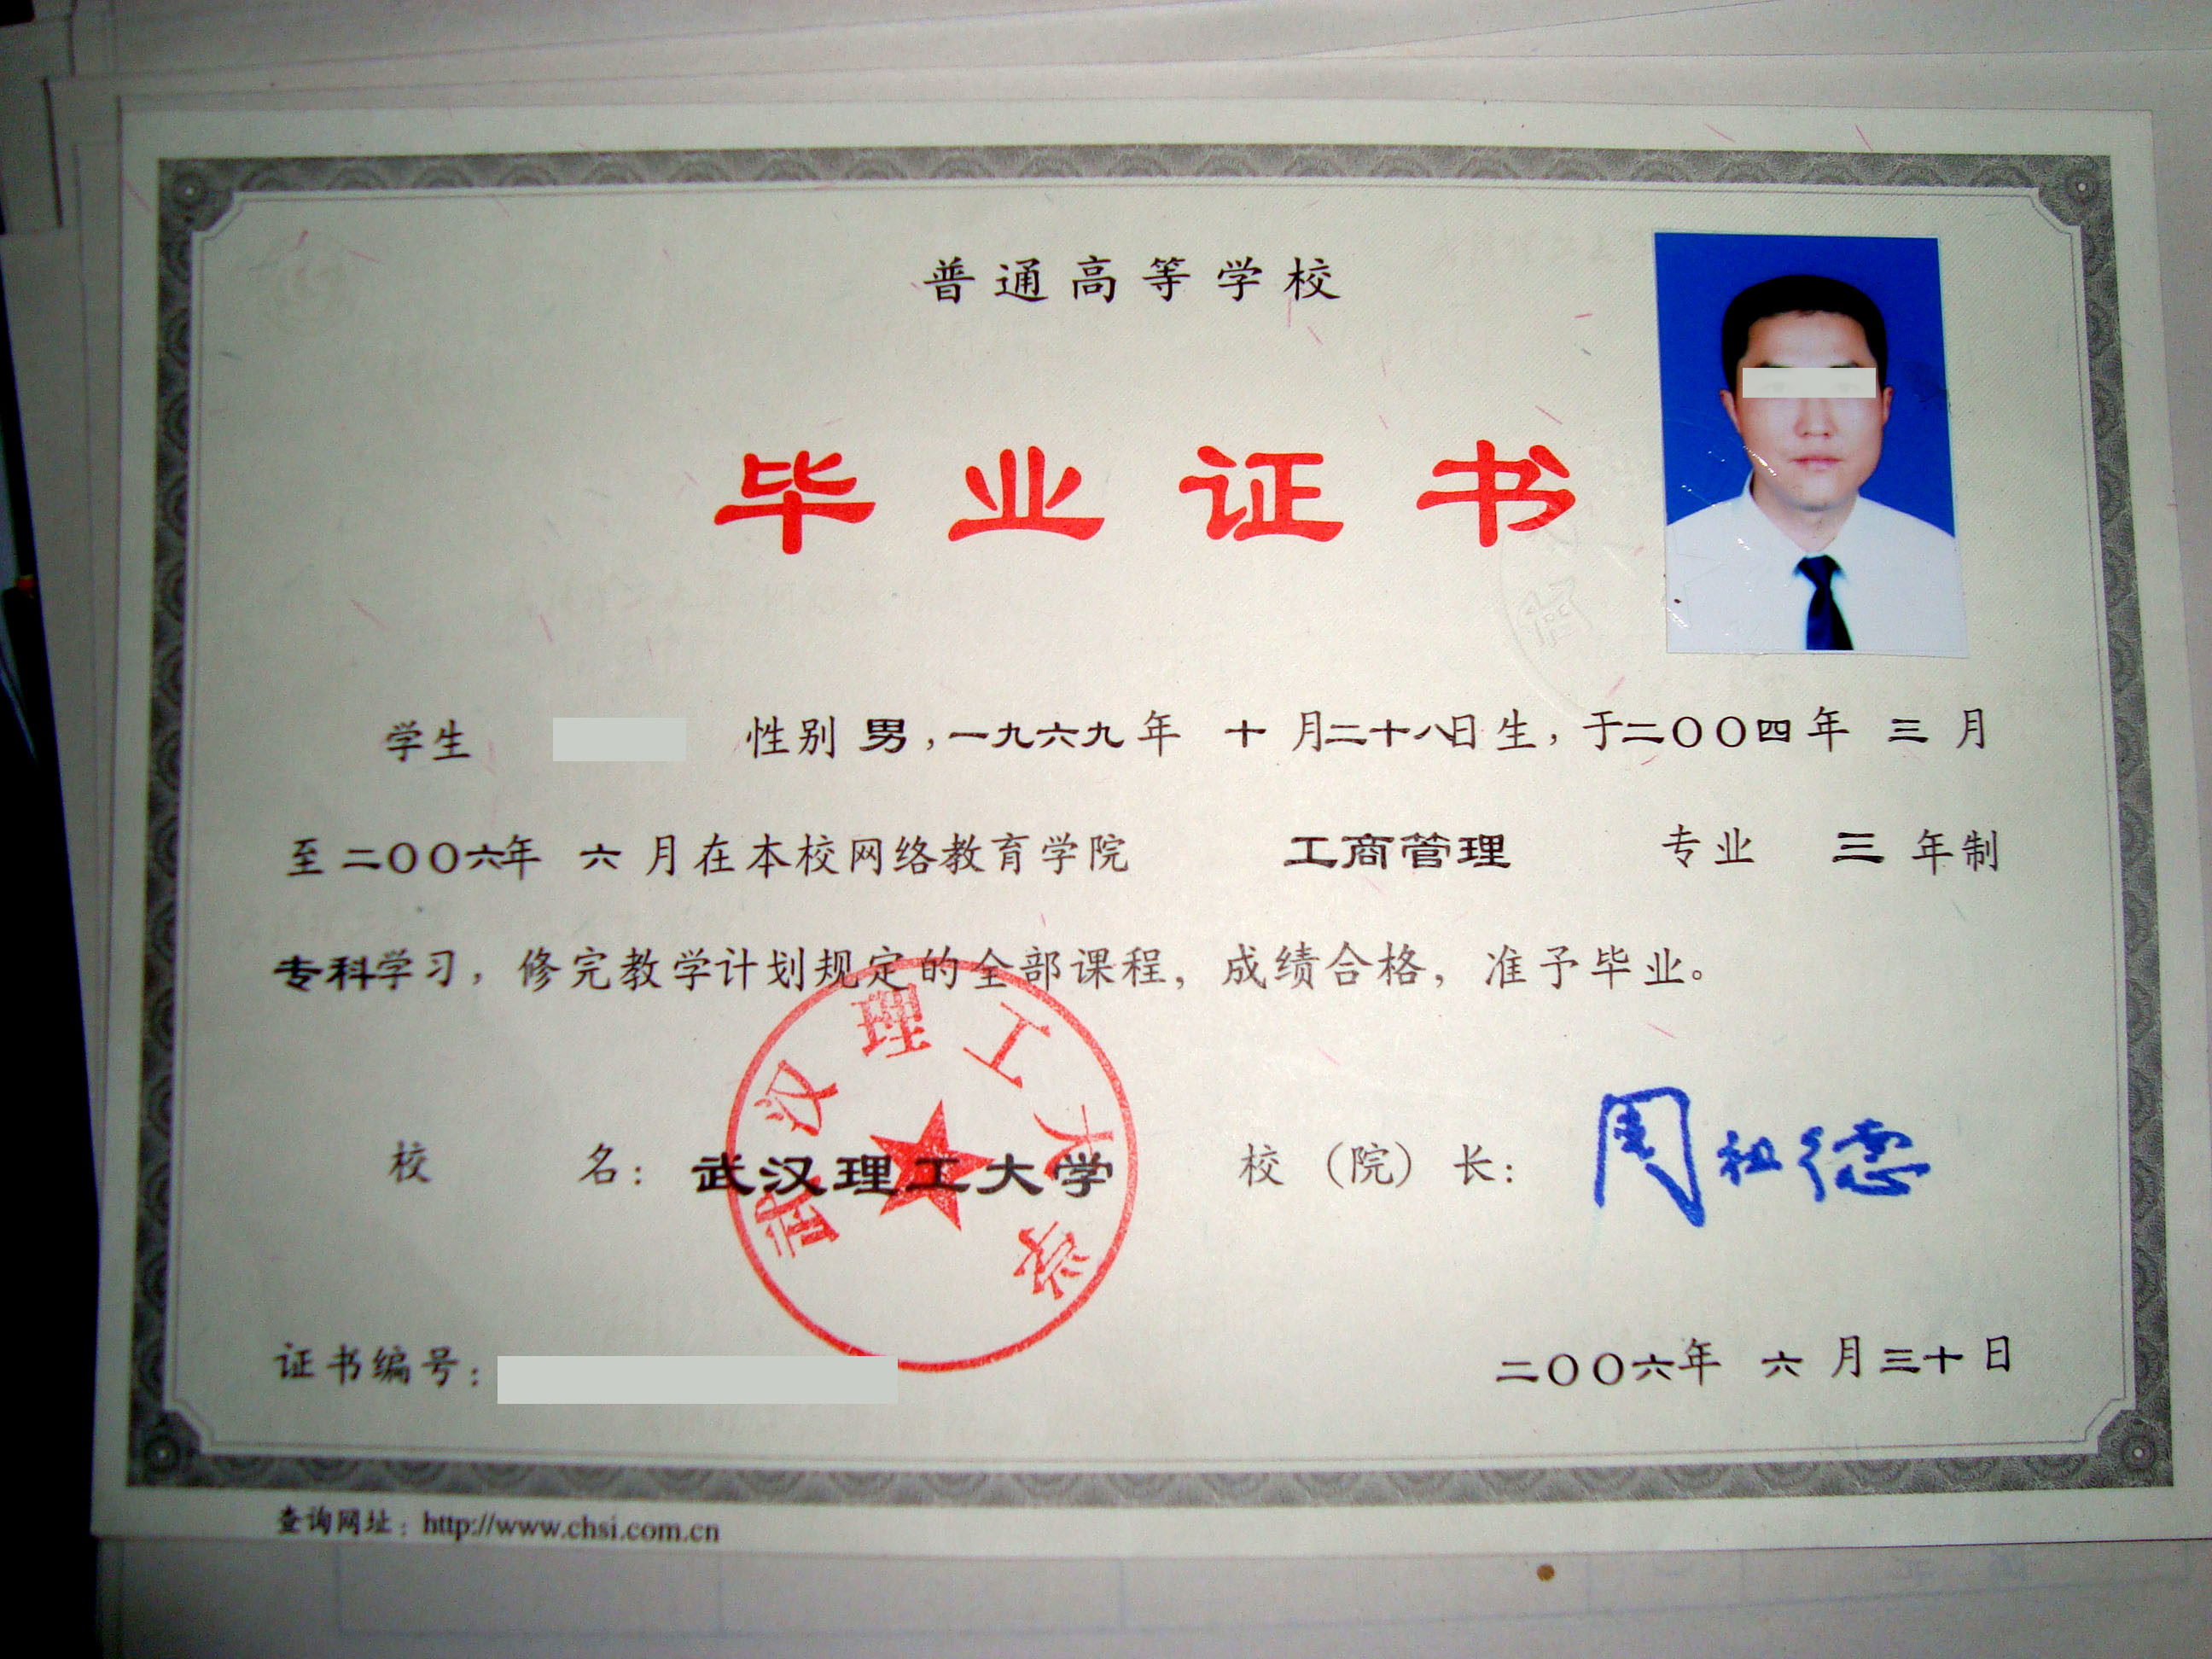 普通高等学校
毕业证书
学生 性别 男，一九六九年 十 月二十八日生，于二〇〇四年 三 月
至二〇〇六年 六 月在本校网络教育学院 工商管理 专业 三 年制
专科学习，修完教学计划规定的全部课程，成绩合格，准予毕业。
校 名：武汉理工大学 校（院）长：周祖德
武汉理工大学
证书编号： 二〇〇六年 六 月三十日
查询网址：http://www.chsi.com.cn